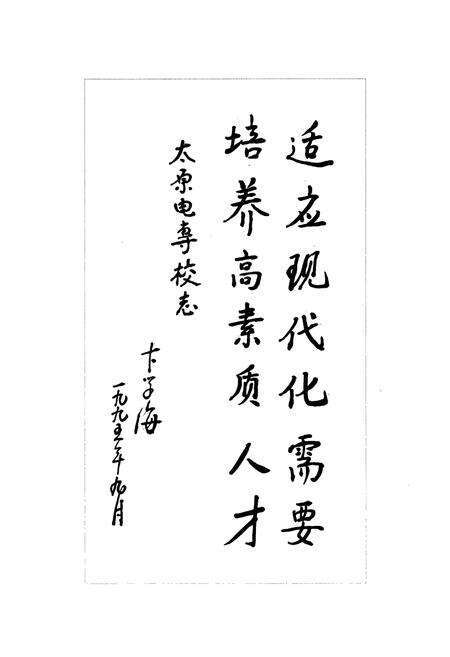 适应现代化需要
培养高素质人才
太原电専校志
卞学海
一九九五年九月